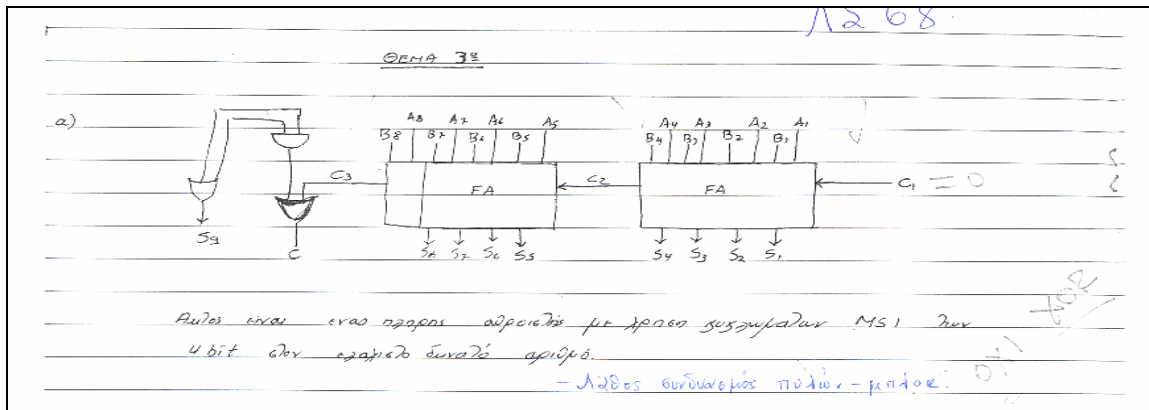 Λ268.
ΘΕΜΑ 3º
α)
B8 A8 B7 A7 B6 A6 B5 A5 B4 A4 B3 A3 B2 A2 B1 A1
C3 FA C2 FA C1 = 0
S9 C S8 S7 S6 S5 S4 S3 S2 S1
Αυτος είναι ενας πληρης αθροιστής με χρηση κυκλωματων MSI των
4 bit στον ελαχιστο δυνατό αριθμό.
- Λάθος συνδυασμός πυλών - μπλοκ.
ΟΧΙ XOR